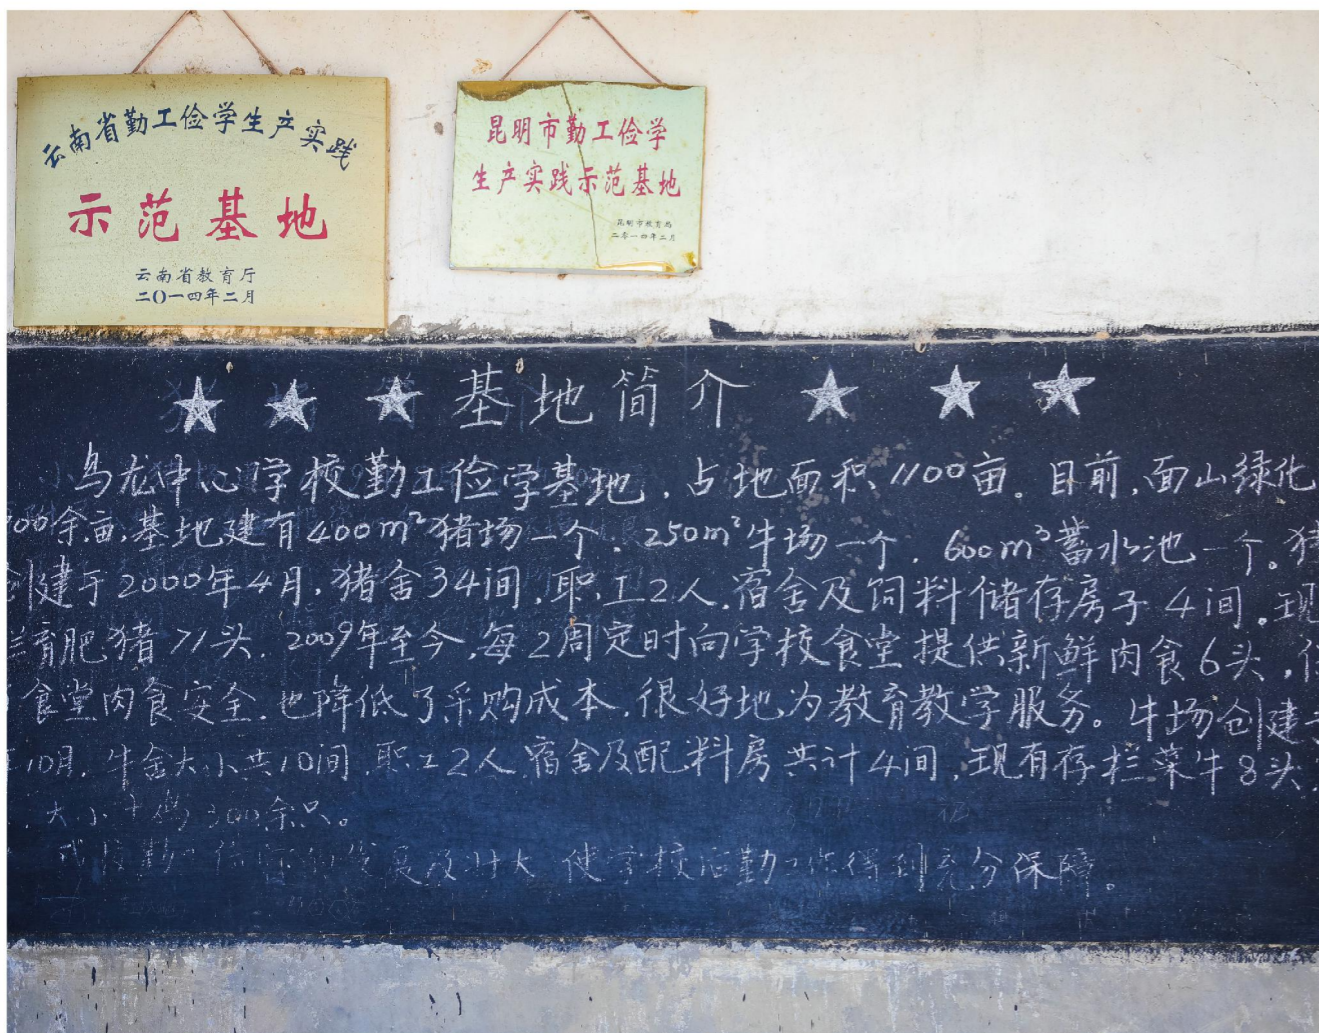 云南省勤工俭学生产实践
示范基地
云南省教育厅
二〇一四年二月
昆明市勤工俭学
生产实践示范基地
昆明市教育局
二零一四年二月
基地简介
乌龙中心学校勤工俭学基地，占地面积1100亩。目前，面山绿化
00余亩，基地建有400m²猪场一个，250m²牛场一个，600m³蓄水池一个。猪
创建于2000年4月，猪舍34间，职工2人，宿舍及饲料储存房子4间。现
育肥猪71头，2009年至今，每2周定时向学校食堂提供新鲜肉食6头，保
食堂肉食安全，也降低了采购成本，很好地为教育教学服务。牛场创建于
年10月，牛舍大小共10间，职工2人，宿舍及配料房共计4间，现有存栏菜牛8头，
大小 300余只。
发展 壮大 使学校后勤工作得到充分保障。